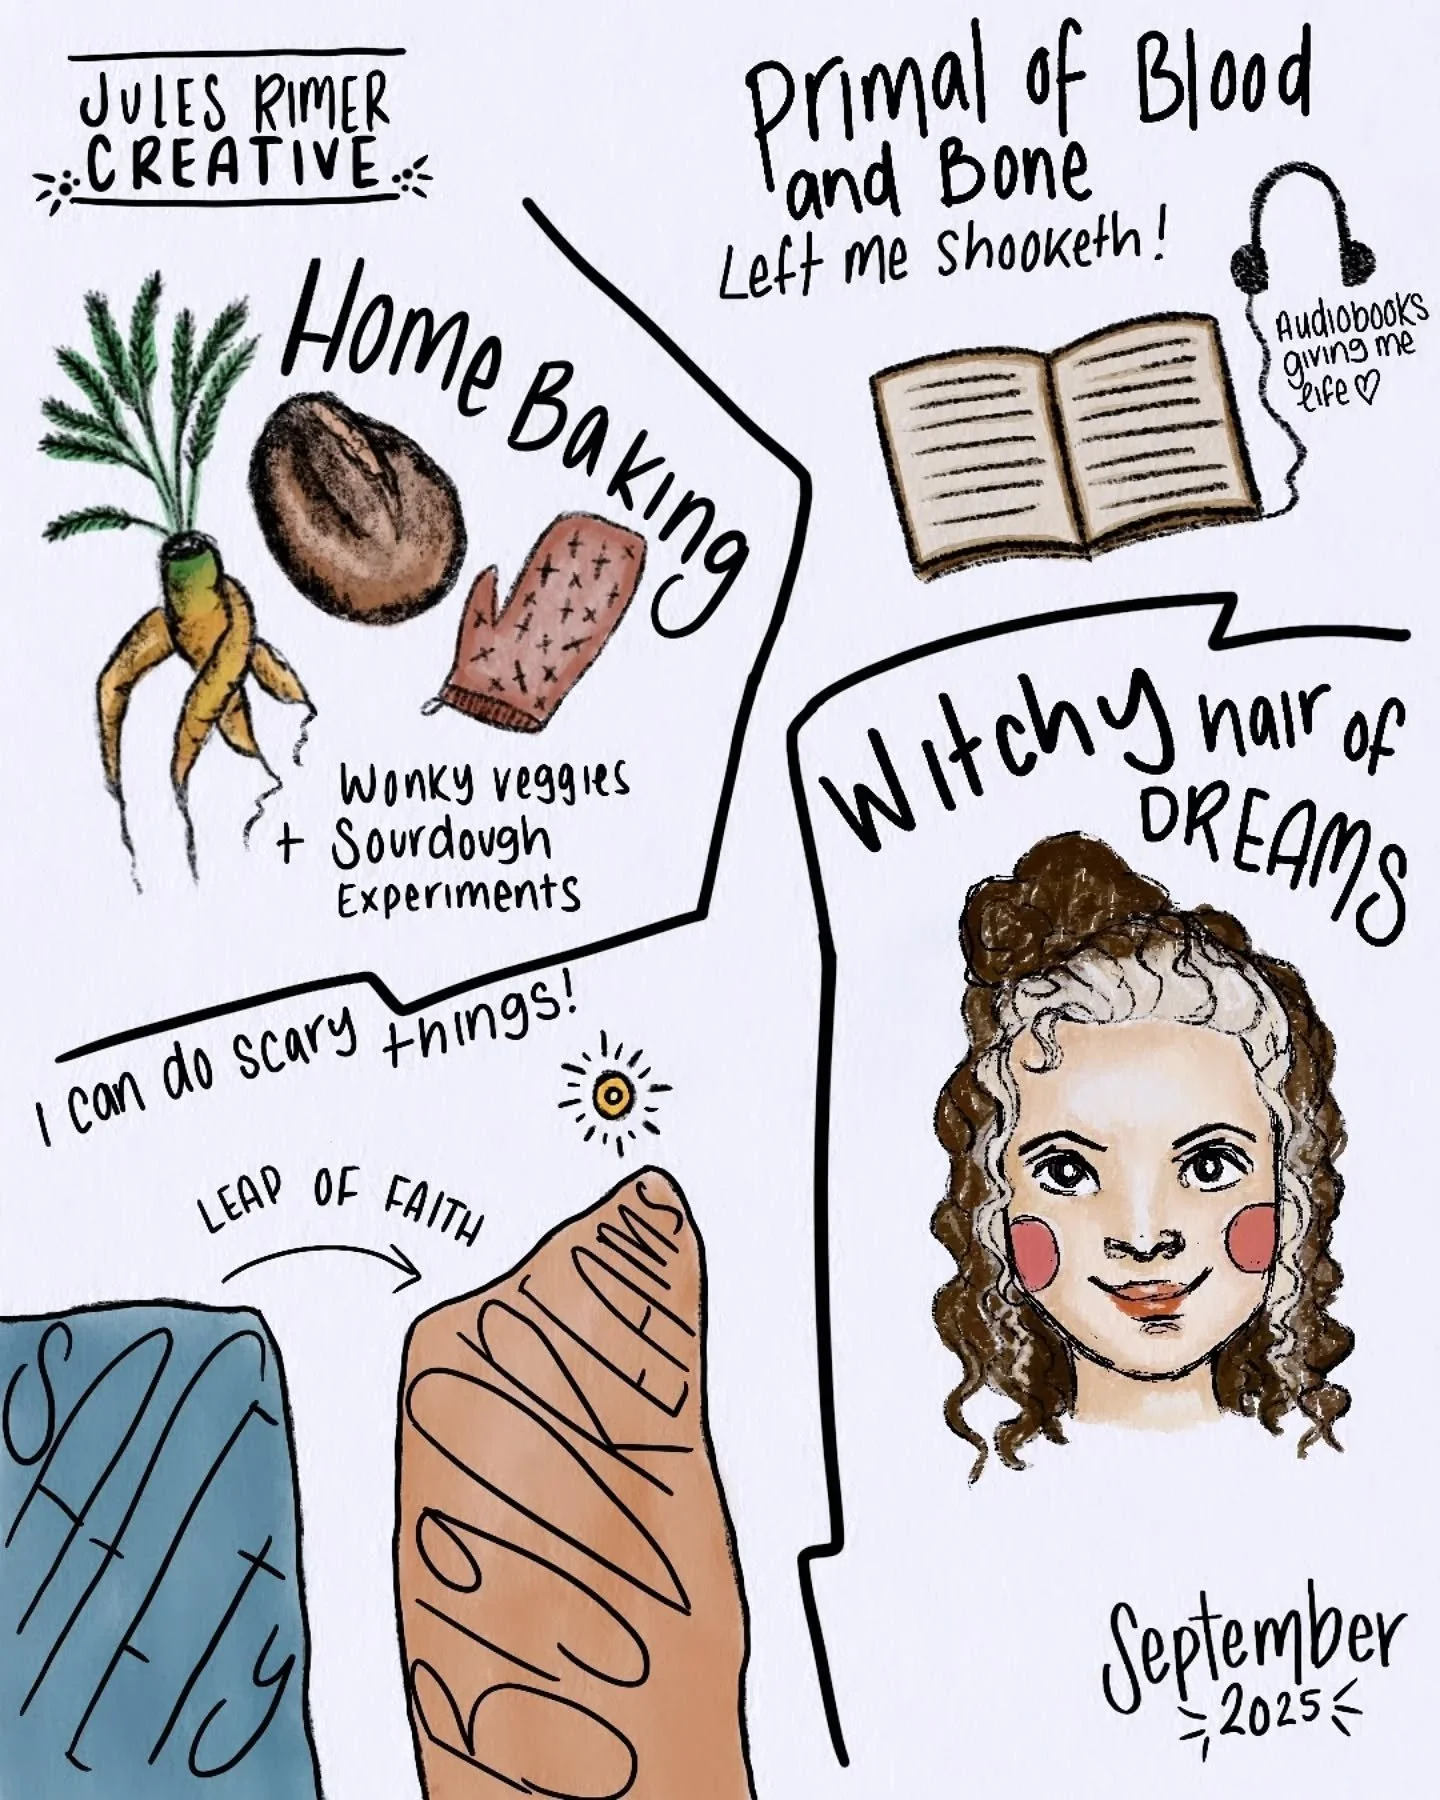 JULES RIMER
CREATIVE
Primal of Blood
and Bone
Left me shooketh!
Audiobooks
giving me
life ♡
Home Baking
Wonky veggies
+ Sourdough
Experiments
Witchy hair of
DREAMS
I can do scary things!
LEAP OF FAITH
SAFETY
BIG DREAMS
September
2025